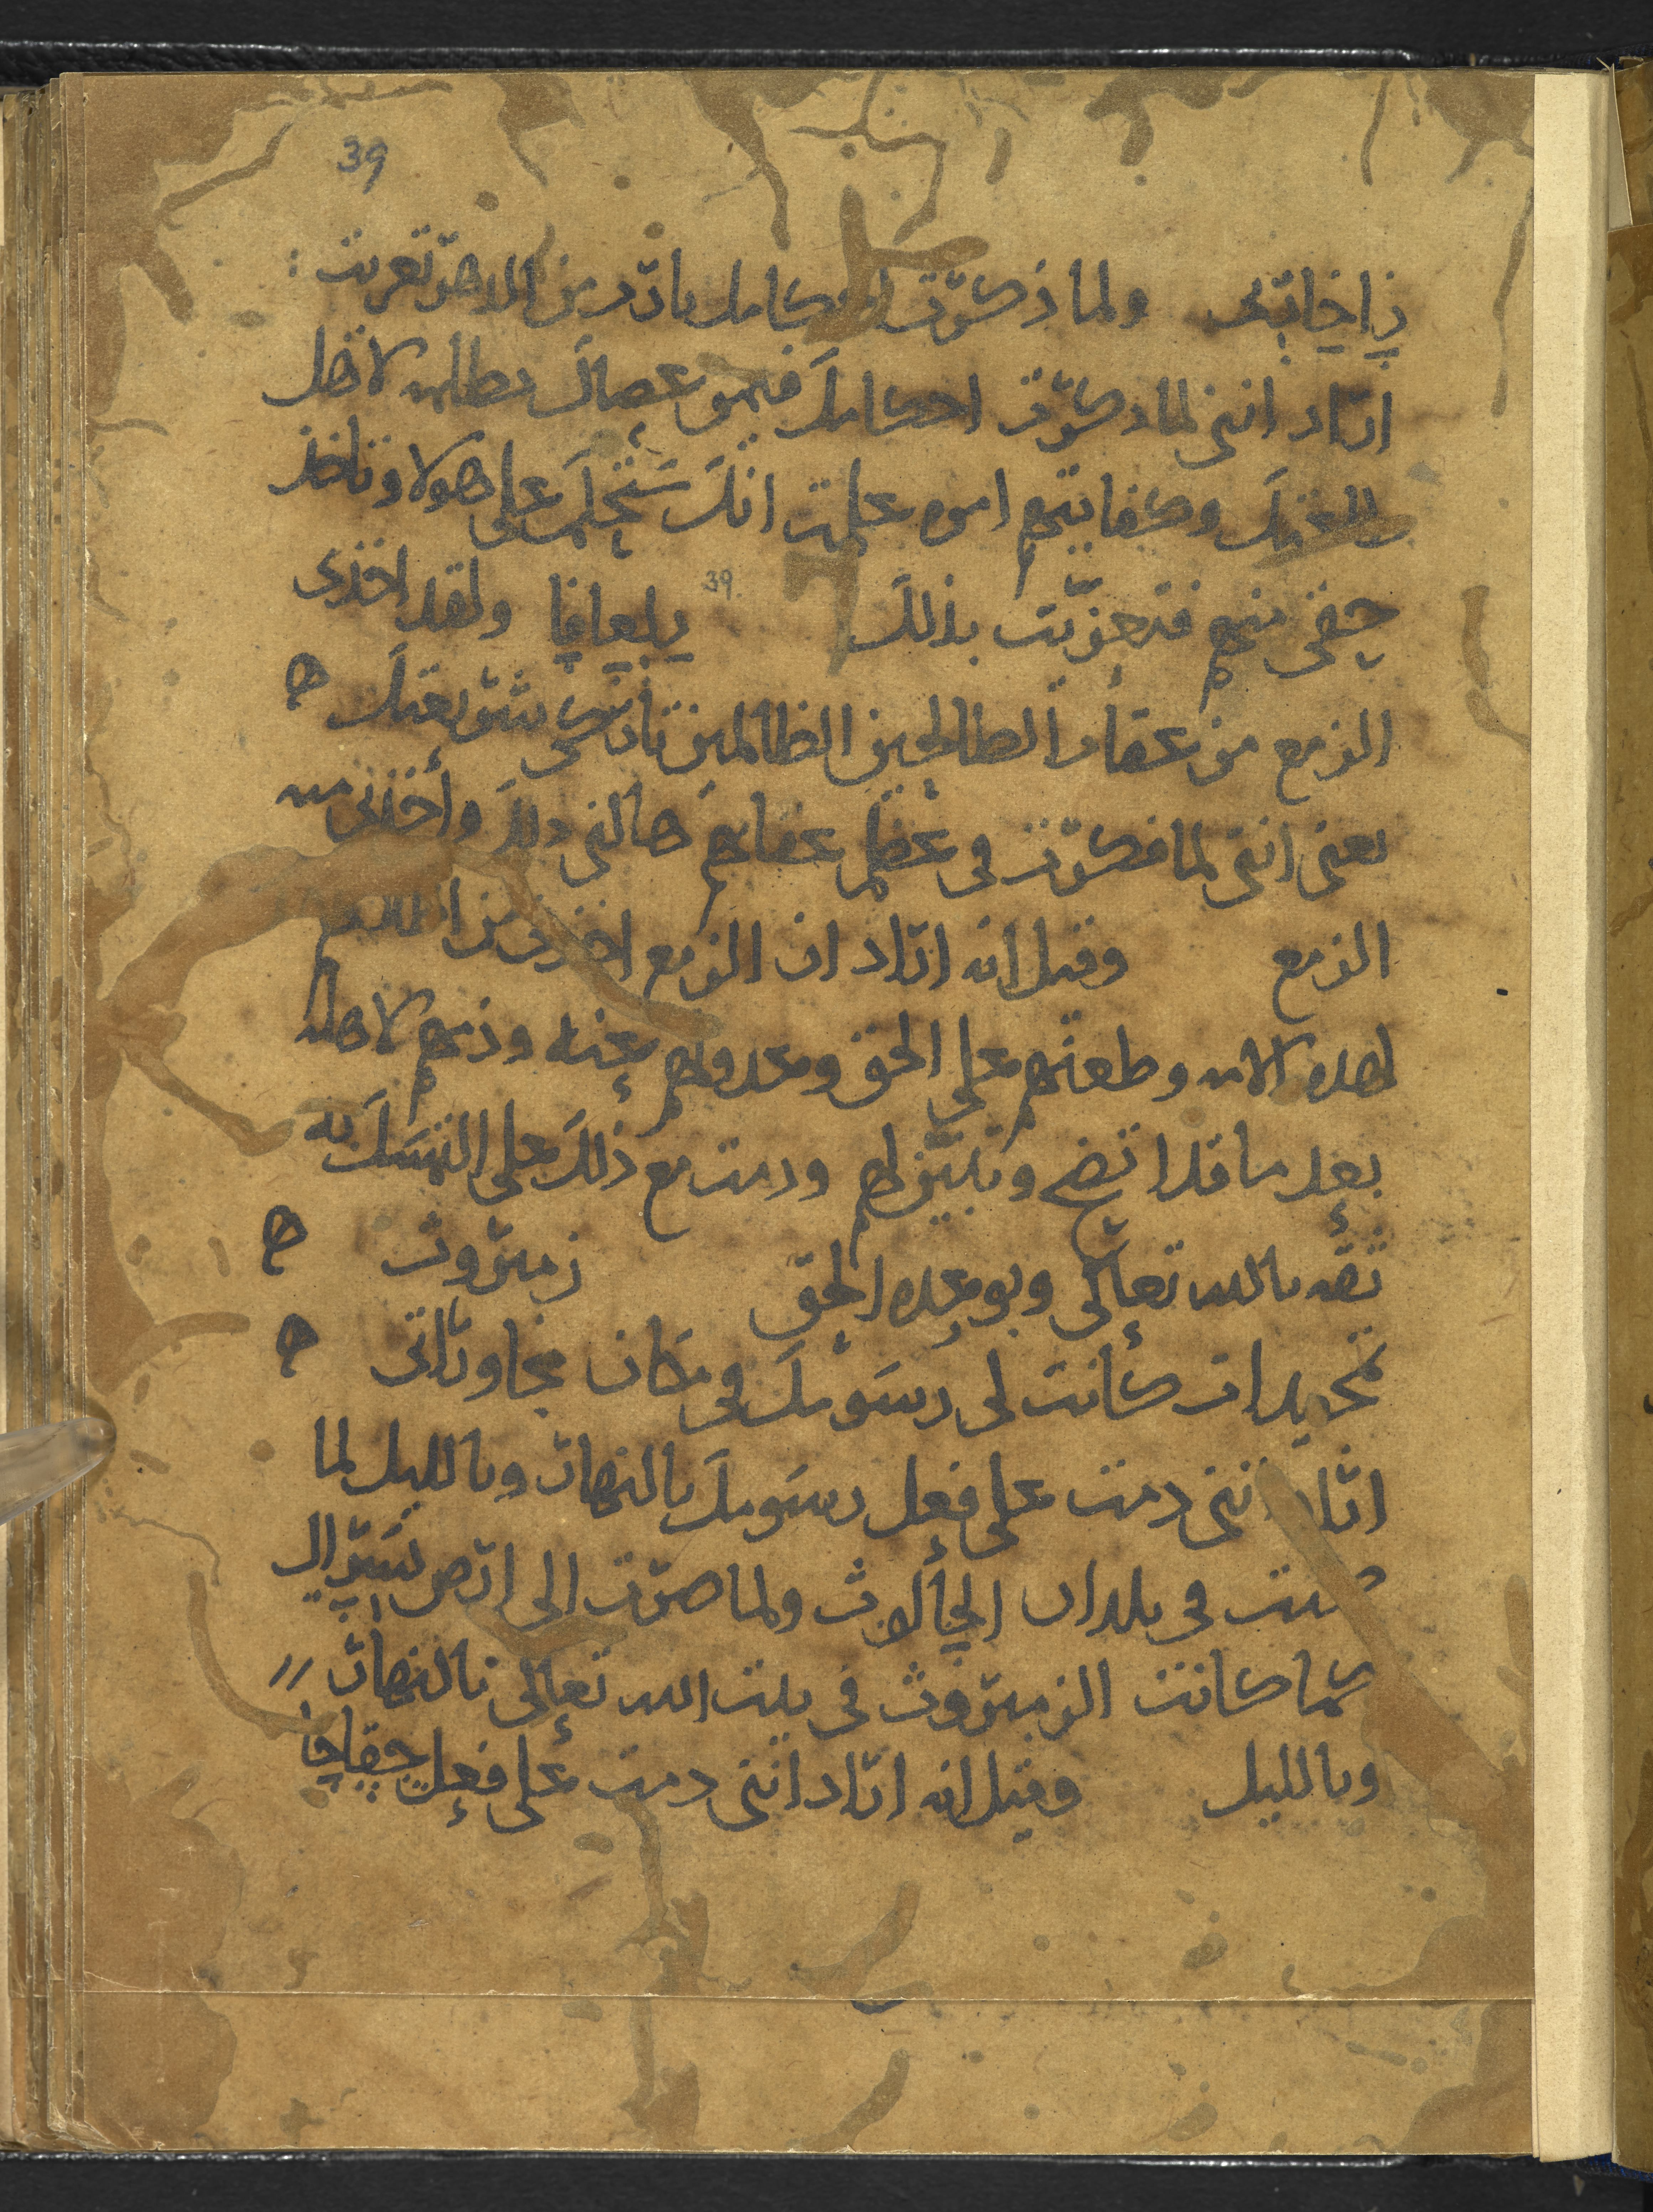 39
زاخارتى ولما ذكرت احكامك يارب من الدهر تعزيت :
اراد اننى لما ذكرت احكامك فيمن عصاك لاهل
وكفايتهم امره علمت انك ستحكم على هولا وتاخذ
حقى منهم فتعزيت بذلك 39 زلعافا ولقد اخذنى
الزمع من عقاب الطالحين الظالمين تاركى شريعتك ه
يعنى اننى لما فكرت فى عظم عقابهم هالنى ذلك واخذنى منه
الزمع وقيل انه اراد ان الزمع اخذنى من
لهذه الامه وطعنهم على الحق وعدولهم عنه وذمهم لاهله
بعد ما قد اتضح وتبين لهم ودمت مع ذلك على التمسك به
ثقه بالله تعالى وبوعده الحق زميروث ه
تمجيدات كانت لى رسومك فى مكان مجاوراتى ه
اراد اننى دمت على فعل رسومك بالنهار وبالليل لما
كنت فى بلدان الجالوث ولما صرت الى ارض يسرال
كما كانت الزميروث فى بيت الله تعالى بالنهار
وبالليل وقيل انه اراد اننى دمت على فعل حقاخا